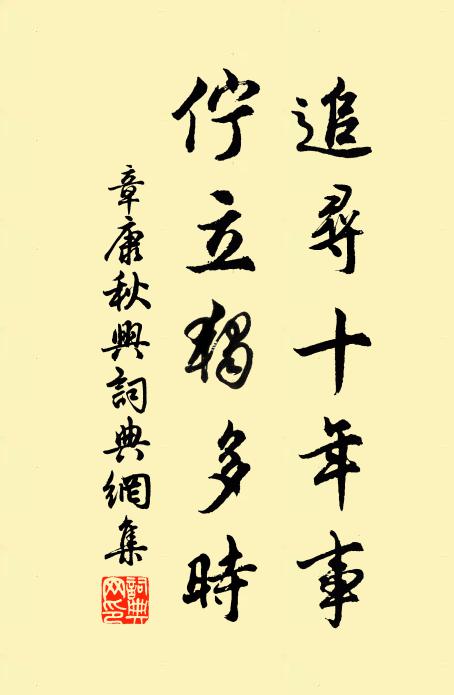 追尋十年事
佇立獨多時
章康秋興詞典網集
詞典網印